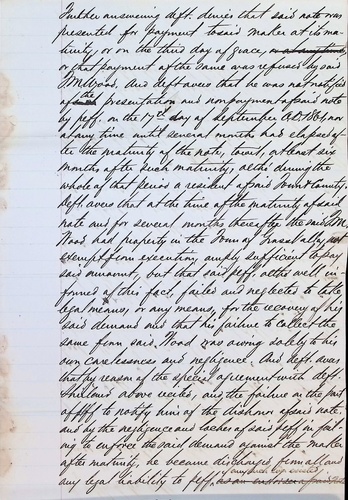 Further answering deft. denies that said note was
presented for payment to said maker at its ma-
turity, or on the third day of grace,
or that payment of the same was refused by said
Wood. And deft avers that he was not notified
of the presentation and nonpayment of said note
by pltff. on the 17th day of September A.D. nor
at any time until several months had elapsed af-
ter the maturity of the note, towit, at least six
months after such maturity, altho during the
whole of that period a resident of said Town & County.
deft. avers that at the time of the maturity of said
note and for several months thereafter the said
Wood had property in the Town of Grass Valley not
exempt from execution, amply sufficient to pay
said amount, but that said pltff, altho well in-
formed of this fact, failed and neglected to take
legal means, or any means, for the recovery of his
said demand and that his failure to collect the
same from said Wood was owing solely to his
own carelessness and negligence. And deft. avers
that by reason of the special agreement with deft.
above recited, and the failure on the part
of pltff to notify him of the dishonor of said note,
and by the negligence and laches of said pltff in fail-
ing to enforce the said demand against the maker
after maturity, he became discharged from all and
any legal liability to pltff,